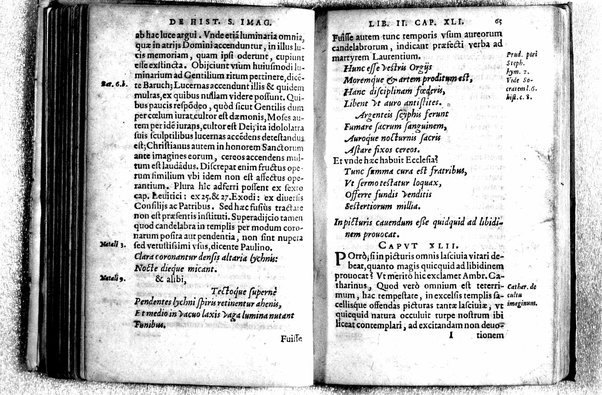 DE HIST. S. IMAG.
ab hac luce argui. Vnde etiā luminaria omnia,
quæ in atrijs Domini accenduntur, in illus lu
cis memoriam, quam ipsi oderunt, cupiunt
esse extincta. Objiciunt vsum huiusmodi lu
minarium ad Gentilium ritum pertinere, dicē
Bar. 6.b.
te Baruch; Lucernas accendunt illis & quidem
multas, ex quibus nullam videre possunt. Qui
bus paucis respōdeo, quòd sicut Gentilis dum
per cœlum iurat, cultor est dæmonis, Moses au
tem per idē iurans, cultor est Dei; ita idololatra
suis sculptilibus lucernas accēdens detestandus
est; Christianus autem in honorem Sanctorum
ante imagines eorum, cereos accendens mul
tum est laudādus. Discrepat enim fructus ope
rum similium vbi idem non est affectus ope
rantium. Plura hic adferri possent ex sexto
cap. Leuitici: ex 25. & 27. Exodi: ex diuersis
Consilijs ac Patribus. Sed hæc fusius tractare
non est præsentis instituti. Superadijcio tamen
quod candelabra in templis per modum coro
narum posita aut pendentia, non sunt nupera
Natali 3.
sed vetustissimi vsus, dicente Paulino.
Clara coronantur densis altaria lychnis:
Nocte dieque micant.
Natali 9.
& alibi,
Tectoque supernè
Pendentes lychni spiris retinentur ahenis,
Et medio in vacuo laxis vaga lumina nutant
Funibus.
Fuisse
LIB. II. CAP. XLI. 65
Fuisse autem tunc temporis vsum aureorum
candelabrorum, indicant præfecti verba ad
martyrem Laurentium.
Prud. peri
Steph.
hym. 2.
Vide So
cratem l. 6.
hist. c. 8.
Hunc esse vestris Orgijs
Moremque & artem proditum est,
Hanc disciplinam fœderis,
Libent vt auro antistites.
Argenteis scyphis ferunt
Fumare sacrum sanguinem,
Auroque nocturnis sacris
Astare fixos cereos.
Et vnde hæc habuit Ecclesia?
Tunc summa cura est fratribus,
Vt sermo testatur loquax,
Offerre fundis venditis
Sestertiorum millia.
In picturis cauendum esse quidquid ad libidi
nem prouocat.
CAPVT XLII.
PORrò, si in picturis omnis lasciuia vitari de
beat, quanto magis quicquid ad libidinem
prouocat? Vt meritò hic exclamet Ambr. Cat
Cathar. de
cultu
imaginum.
tharinus, Quod verò omnium est teterri
mum, hac tempestate, in excelsis templis sa
cellisque offendas picturas tantæ lasciuiæ, vt
quicquid natura occuluit turpe nostrum ibi
liceat contemplari, ad excitandam non deuo
I tionem